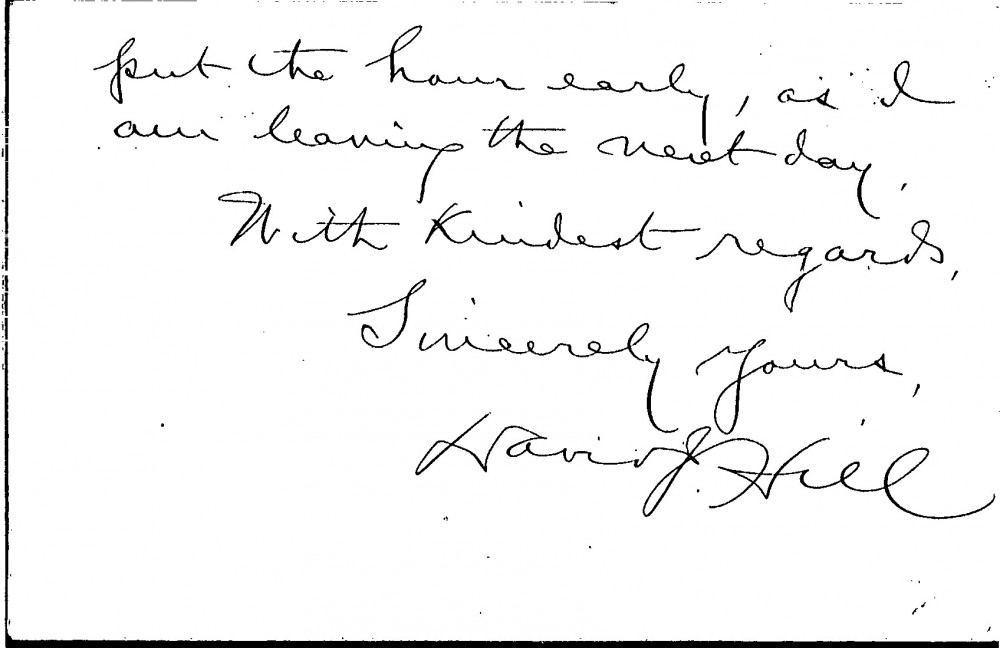 put the hour early, as I
am leaving the next day.
With Kindest regards,
Sincerely Yours,
David J. Hill